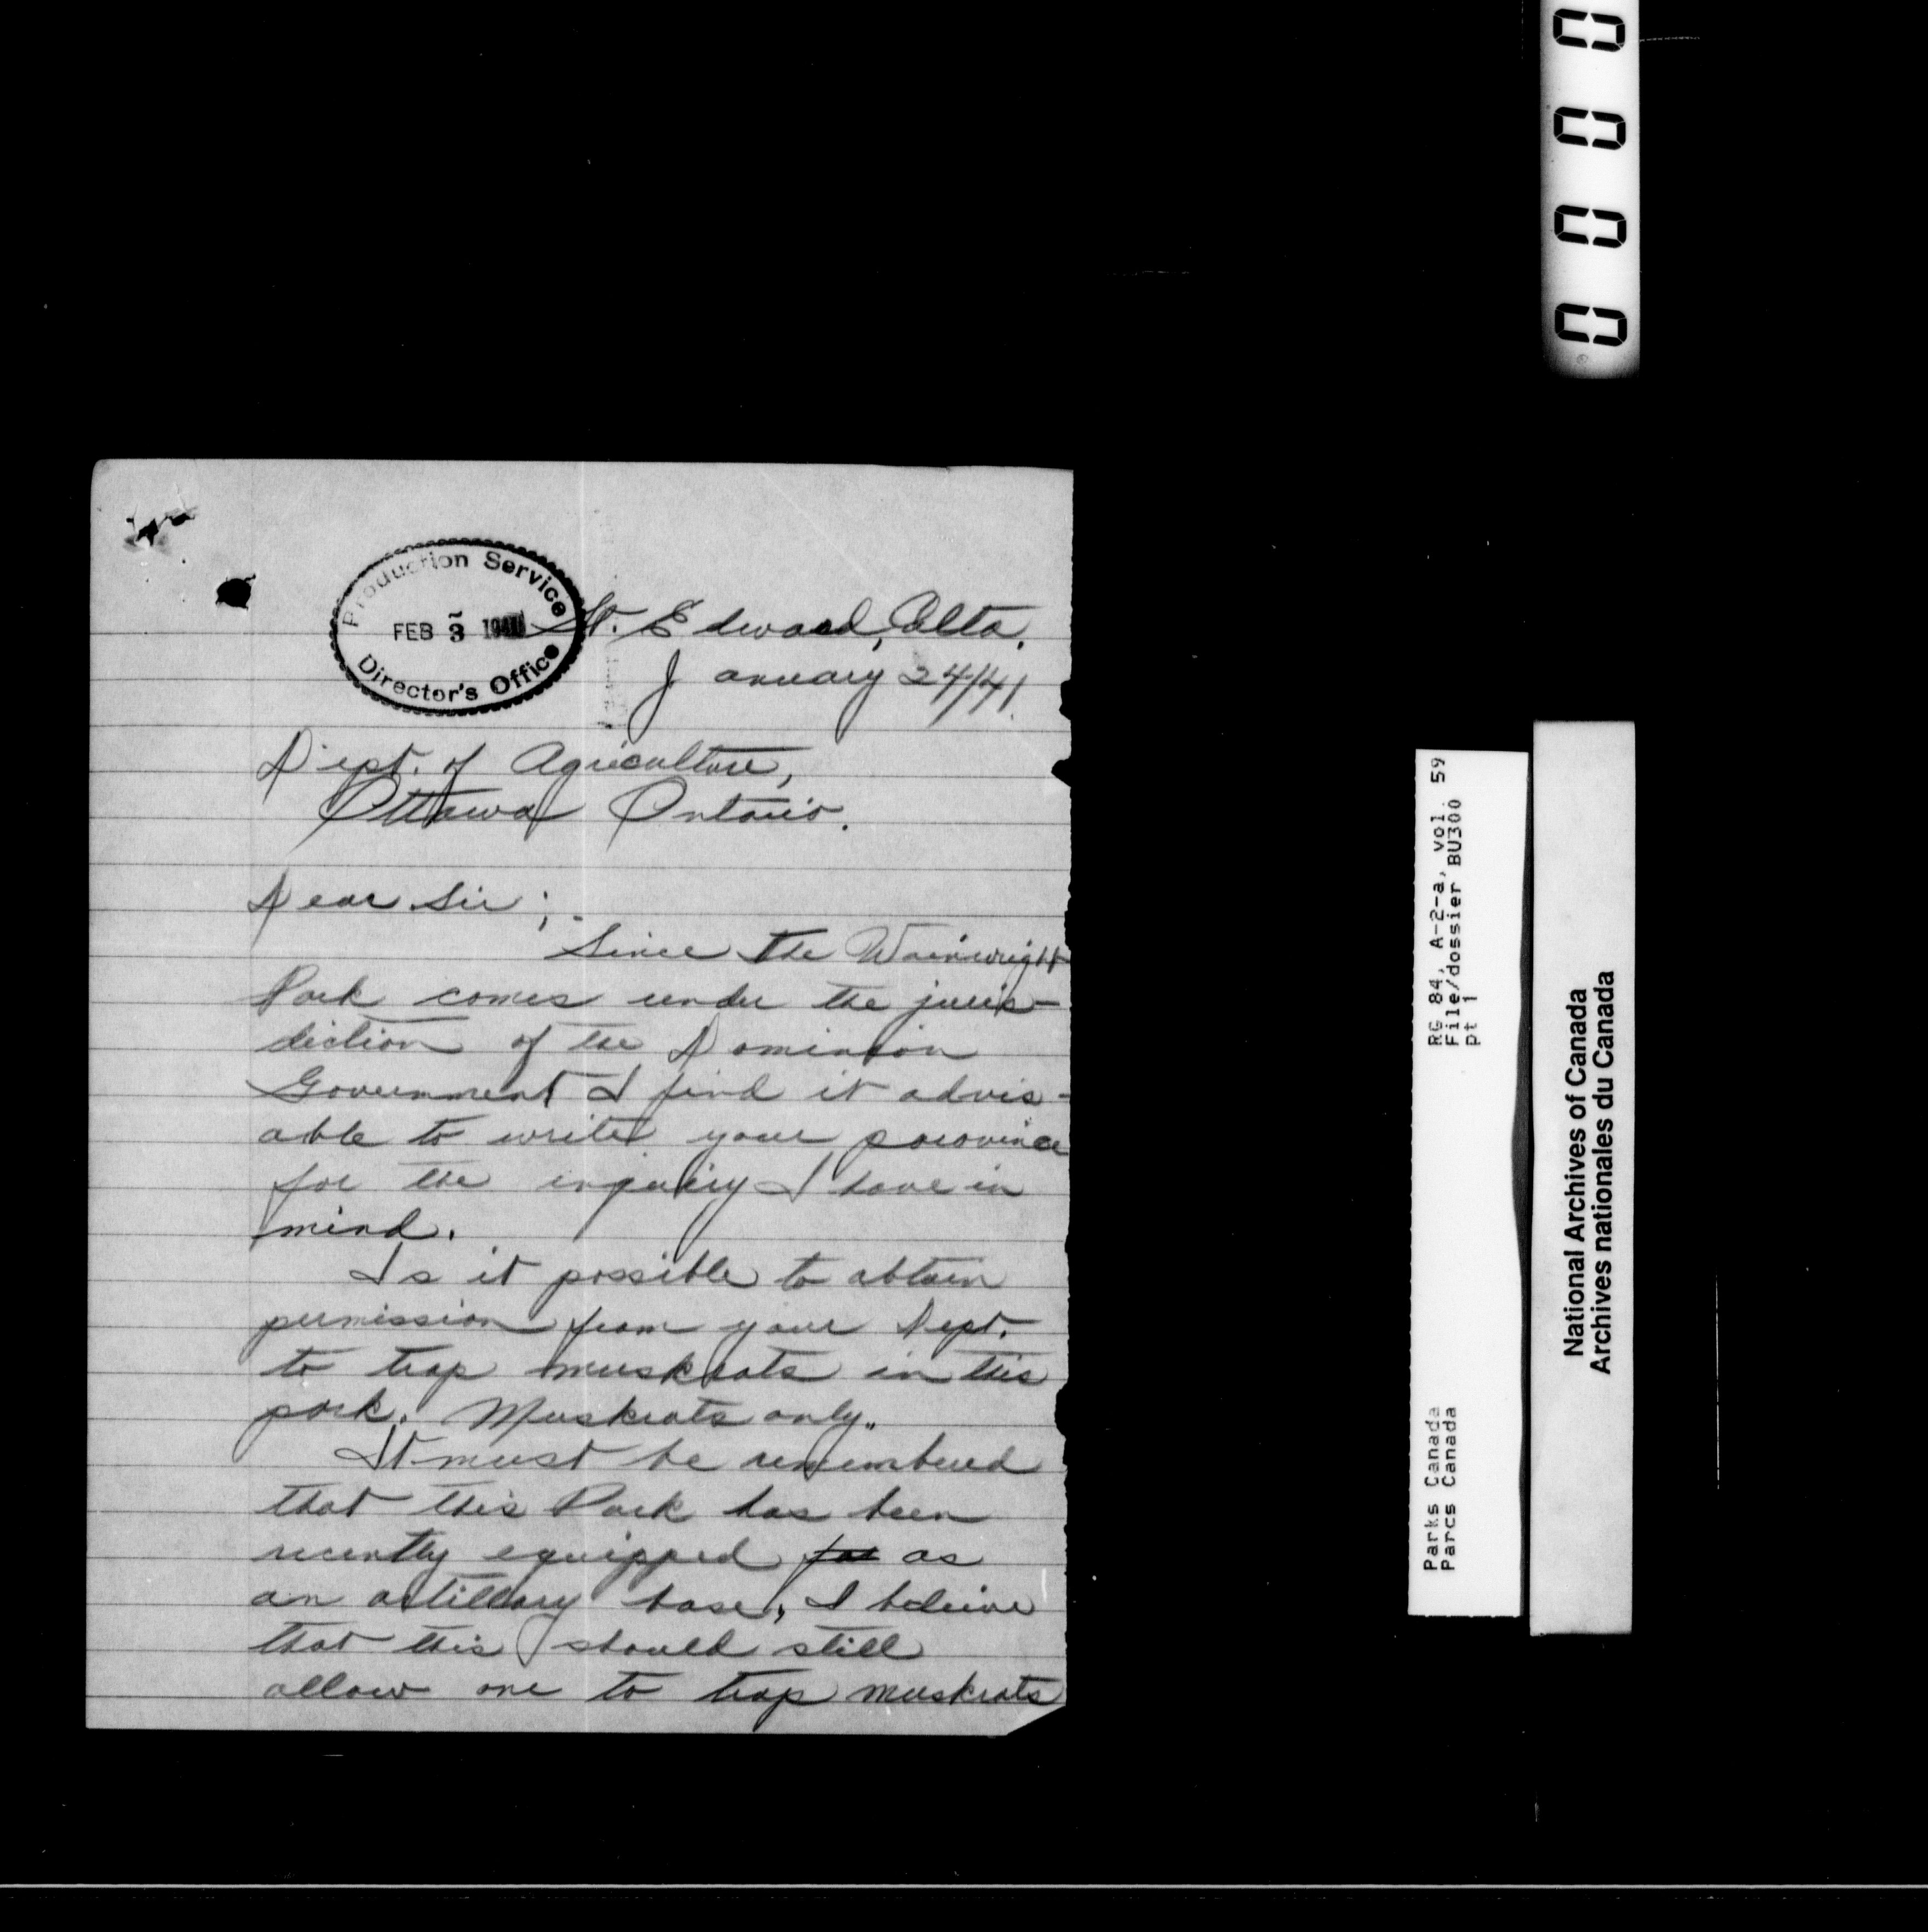 Production Service
FEB 3 1941
Director's Office
St. Edward, Alta.
January 24/41.
Dept. of Agriculture,
Ottawa Ontario.
Dear Sir;-
Since the Wainwright
Park comes under the juris-
diction of the Dominion
Government I find it advis-
able to write your province
for the inquiry I have in
mind.
Is it possible to obtain
permission from your Dept.
to trap muskrats in this
park. Muskrats only.
It must be remembered
that this Park has been
recently equipped for as
an artillary base, I beleive
that this should still
allow one to trap muskrats
0000
RG 84, A-2-a, vol. 59
File/dossier BU300
pt 1
Parks Canada
Parcs Canada
National Archives of Canada
Archives nationales du Canada